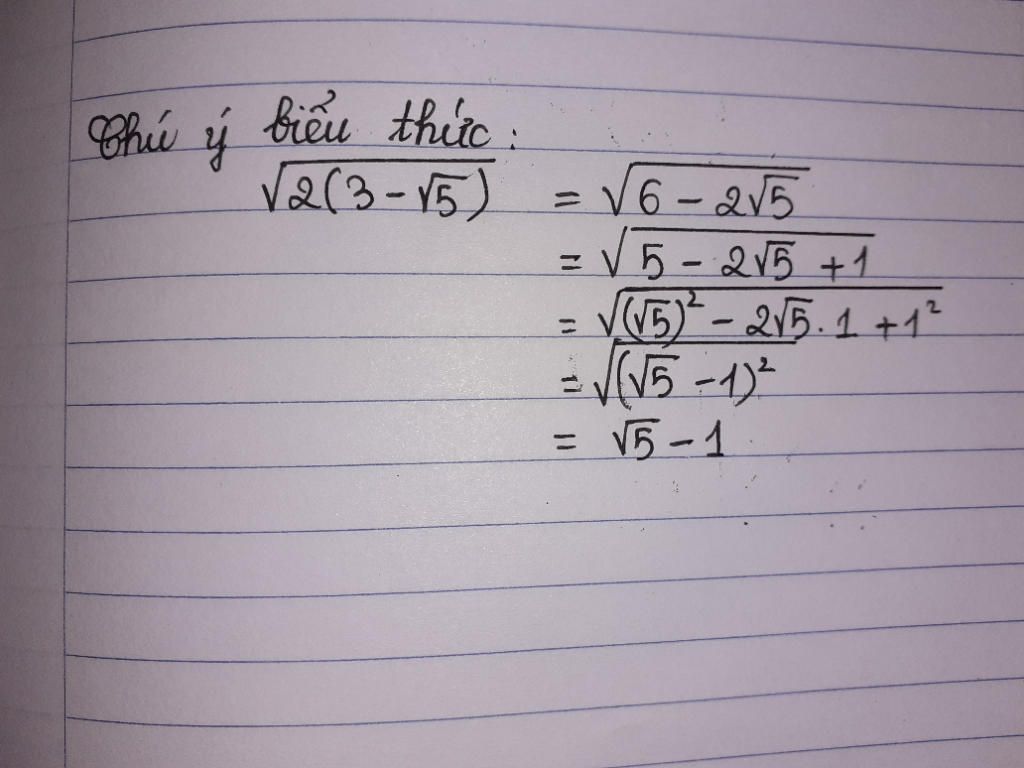 Chú ý biểu thức:
√(2(3 - √5)) = √(6 - 2√5)
= √(5 - 2√5 + 1)
= √((√5)² - 2√5 . 1 + 1²)
= √((√5 - 1)²)
= √5 - 1